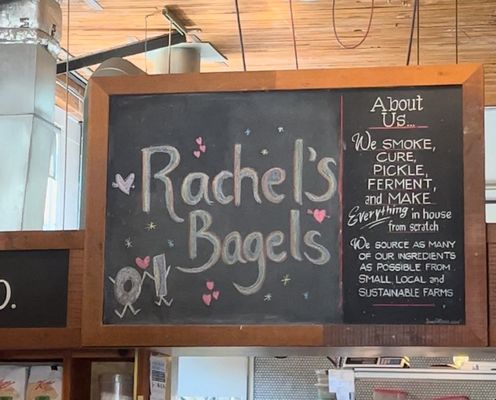 Rachel's
Bagels
About
Us...
We SMOKE,
CURE,
PICKLE,
FERMENT,
and MAKE
Everything in house
from scratch
We SOURCE AS MANY
OF OUR INGREDIENTS
AS POSSIBLE FROM
SMALL, LOCAL and
SUSTAINABLE FARMS